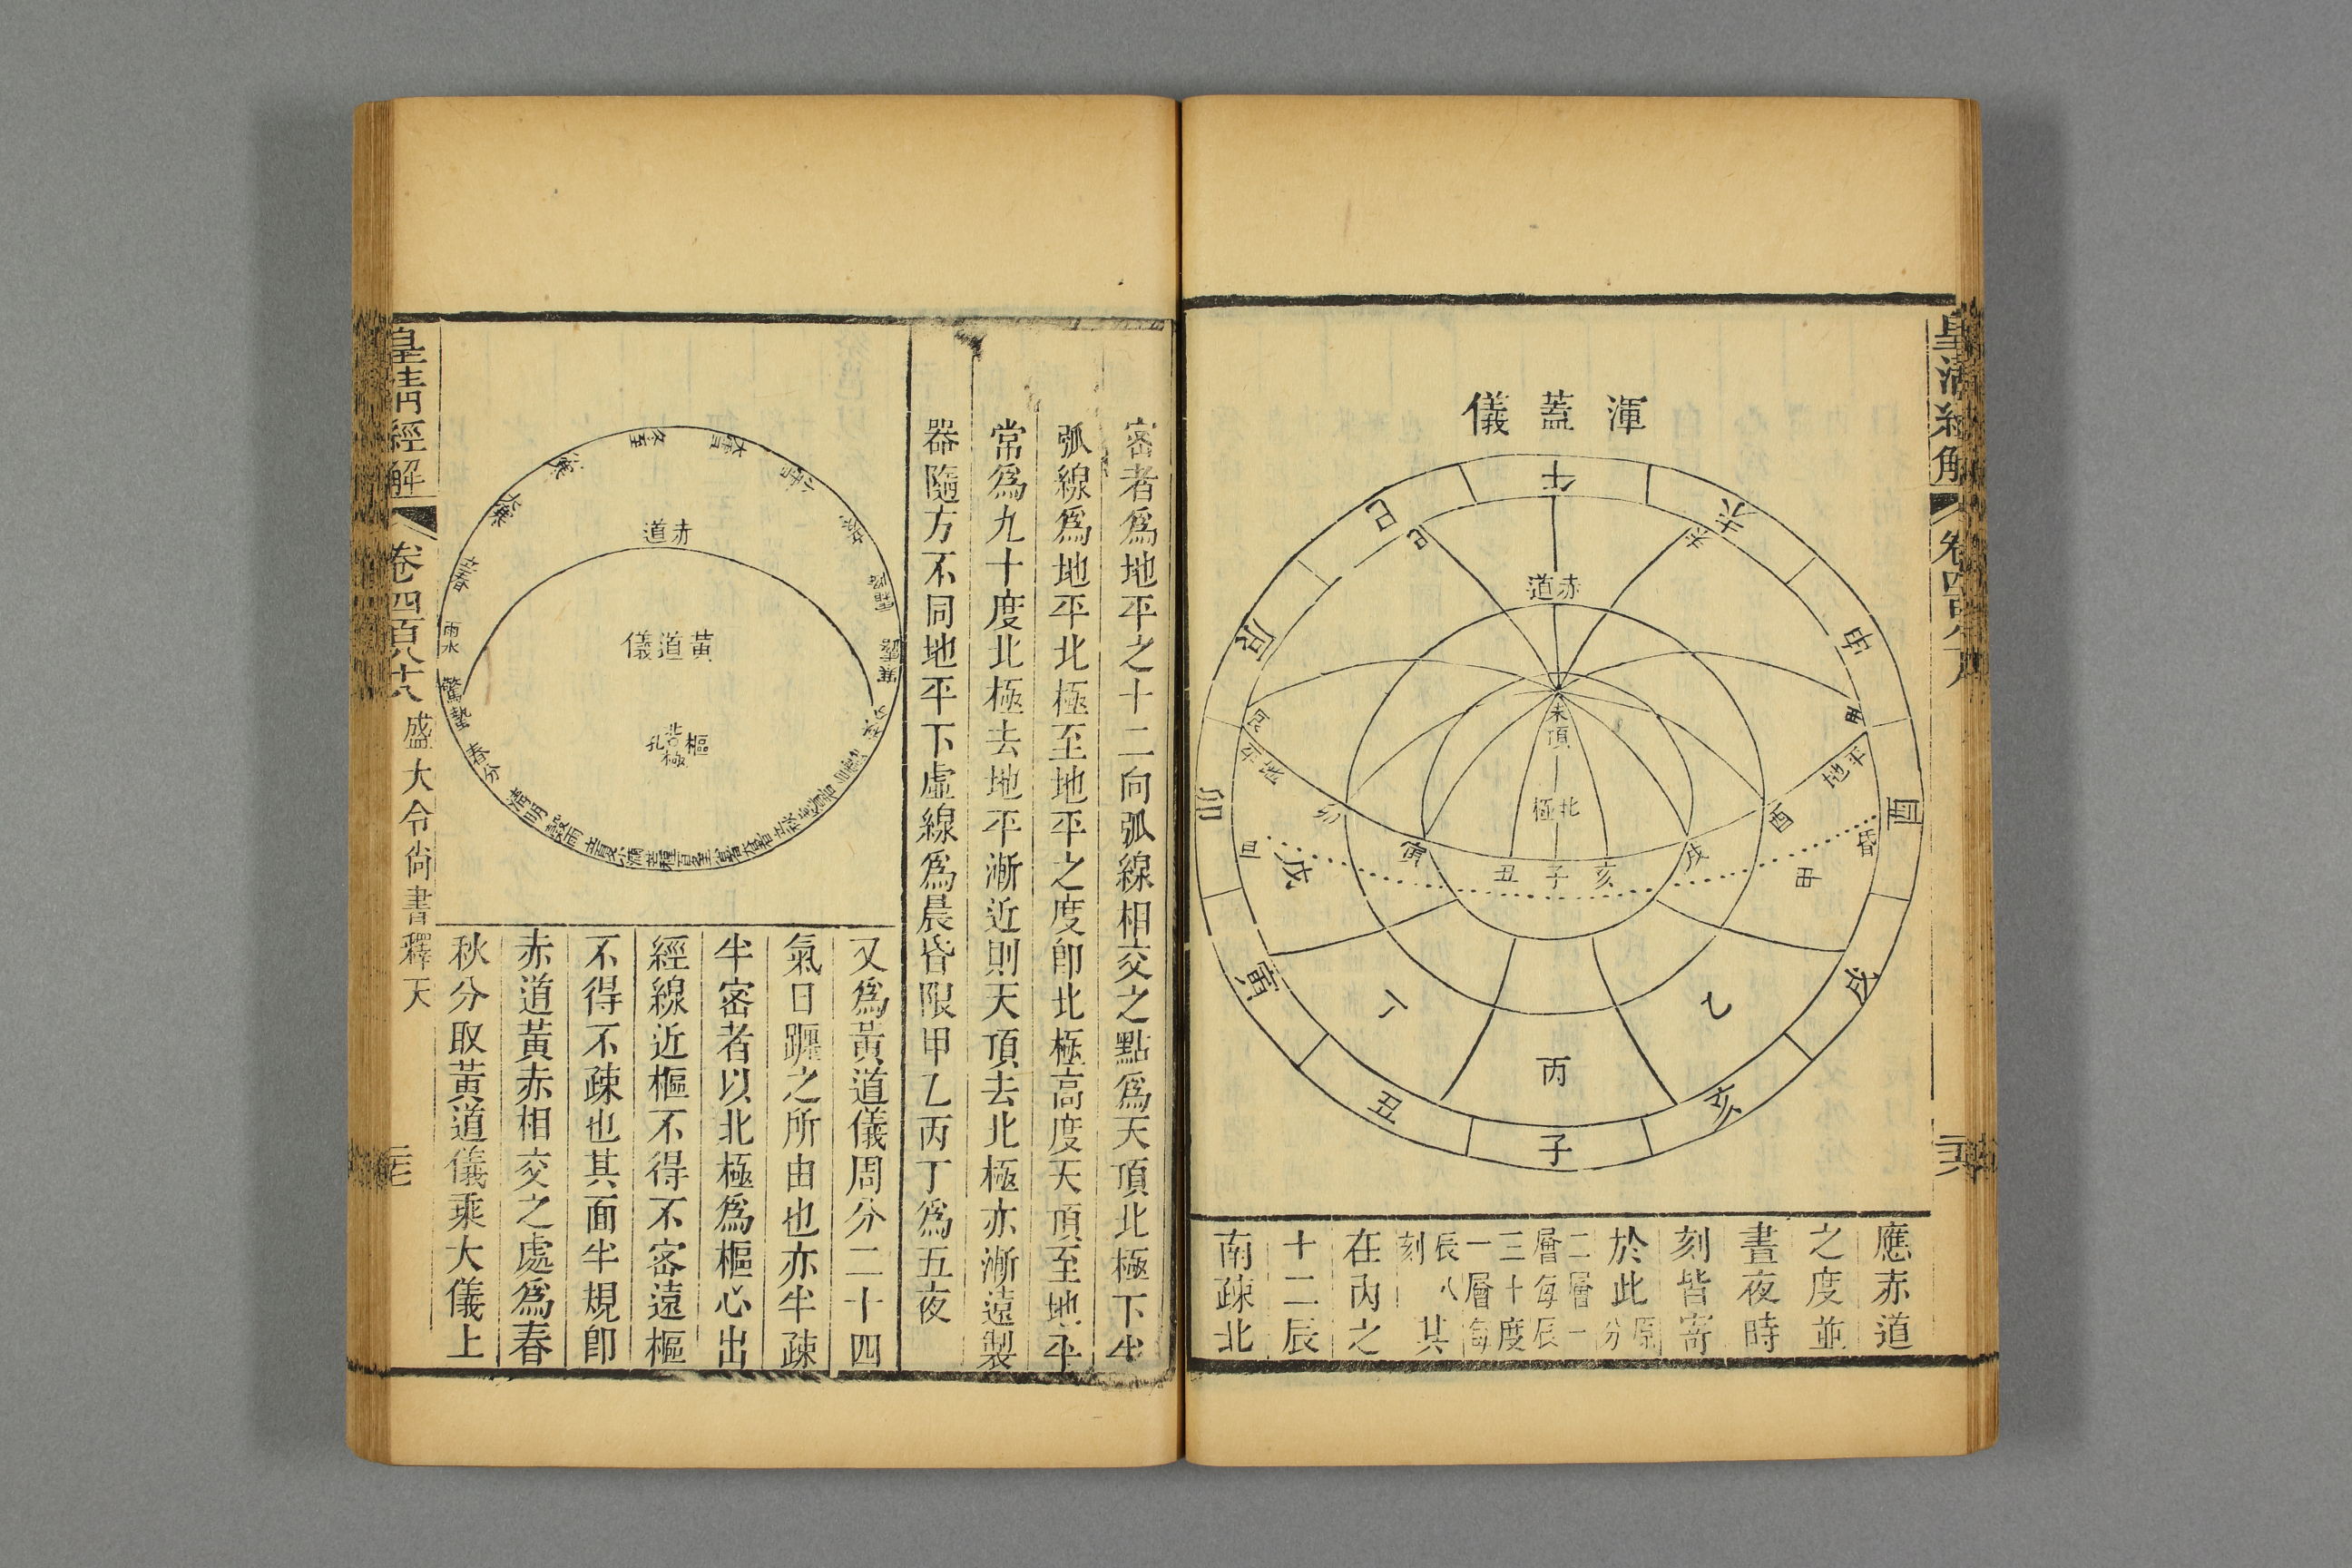 皇清經解
渾蓋儀
午
未
申
酉
戌
亥
子
丑
寅
卯
辰
巳
未
巳
赤道
天頂
北極
地平
地平
酉
戌
亥
子
丑
寅
卯
昏
甲
乙
丙
丁
戊
應赤道
之度並
晝夜時
刻皆寄
於此原分
二層一
層每辰
三十度
一層每
辰八刻
其
在內之
十二辰
南疎北
密者爲地平之十二向弧線相交之點爲天頂北極下半
弧線爲地平北極至地平之度卽北極高度天頂至地平
常爲九十度北極去地平漸近則天頂去北極亦漸遠製
器隨方不同地平下虛線爲晨昏限甲乙丙丁爲五夜
黃道儀
赤道
北極
樞孔
冬至
立春
雨水
驚蟄
春分
清明
穀雨
又爲黃道儀周分二十四
氣日躔之所由也亦半疎
半密者以北極爲樞心出
經線近樞不得不密遠樞
不得不疎也其面半規卽
赤道黃赤相交之處爲春
秋分取黃道儀乘大儀上
皇清經解
卷四百八十八
盛大令尚書釋天